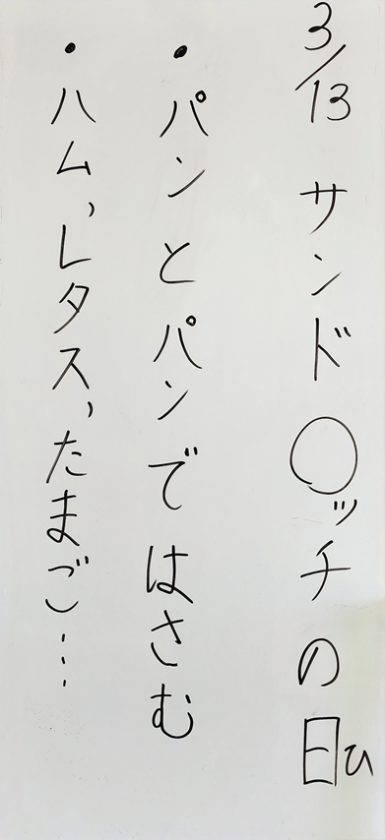 3/13 サンド○ッチの日ひ
・パンとパンではさむ
・ハム,レタス,たまご…